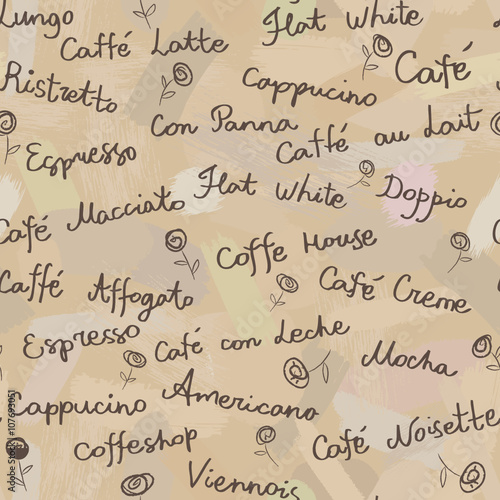 Lungo
Flat White
Caffé Latte
Café
Ristretto
Cappucino
Con Panna
Caffé au Lait
Espresso
Flat White
Doppio
Macciato
Café
Coffe House
Caffé
Affogato
Café Creme
Espresso
Café con Leche
Mocha
Cappucino
Americano
Coffeshop
Café Noisette
Viennois
Adobe Stock | #107693051